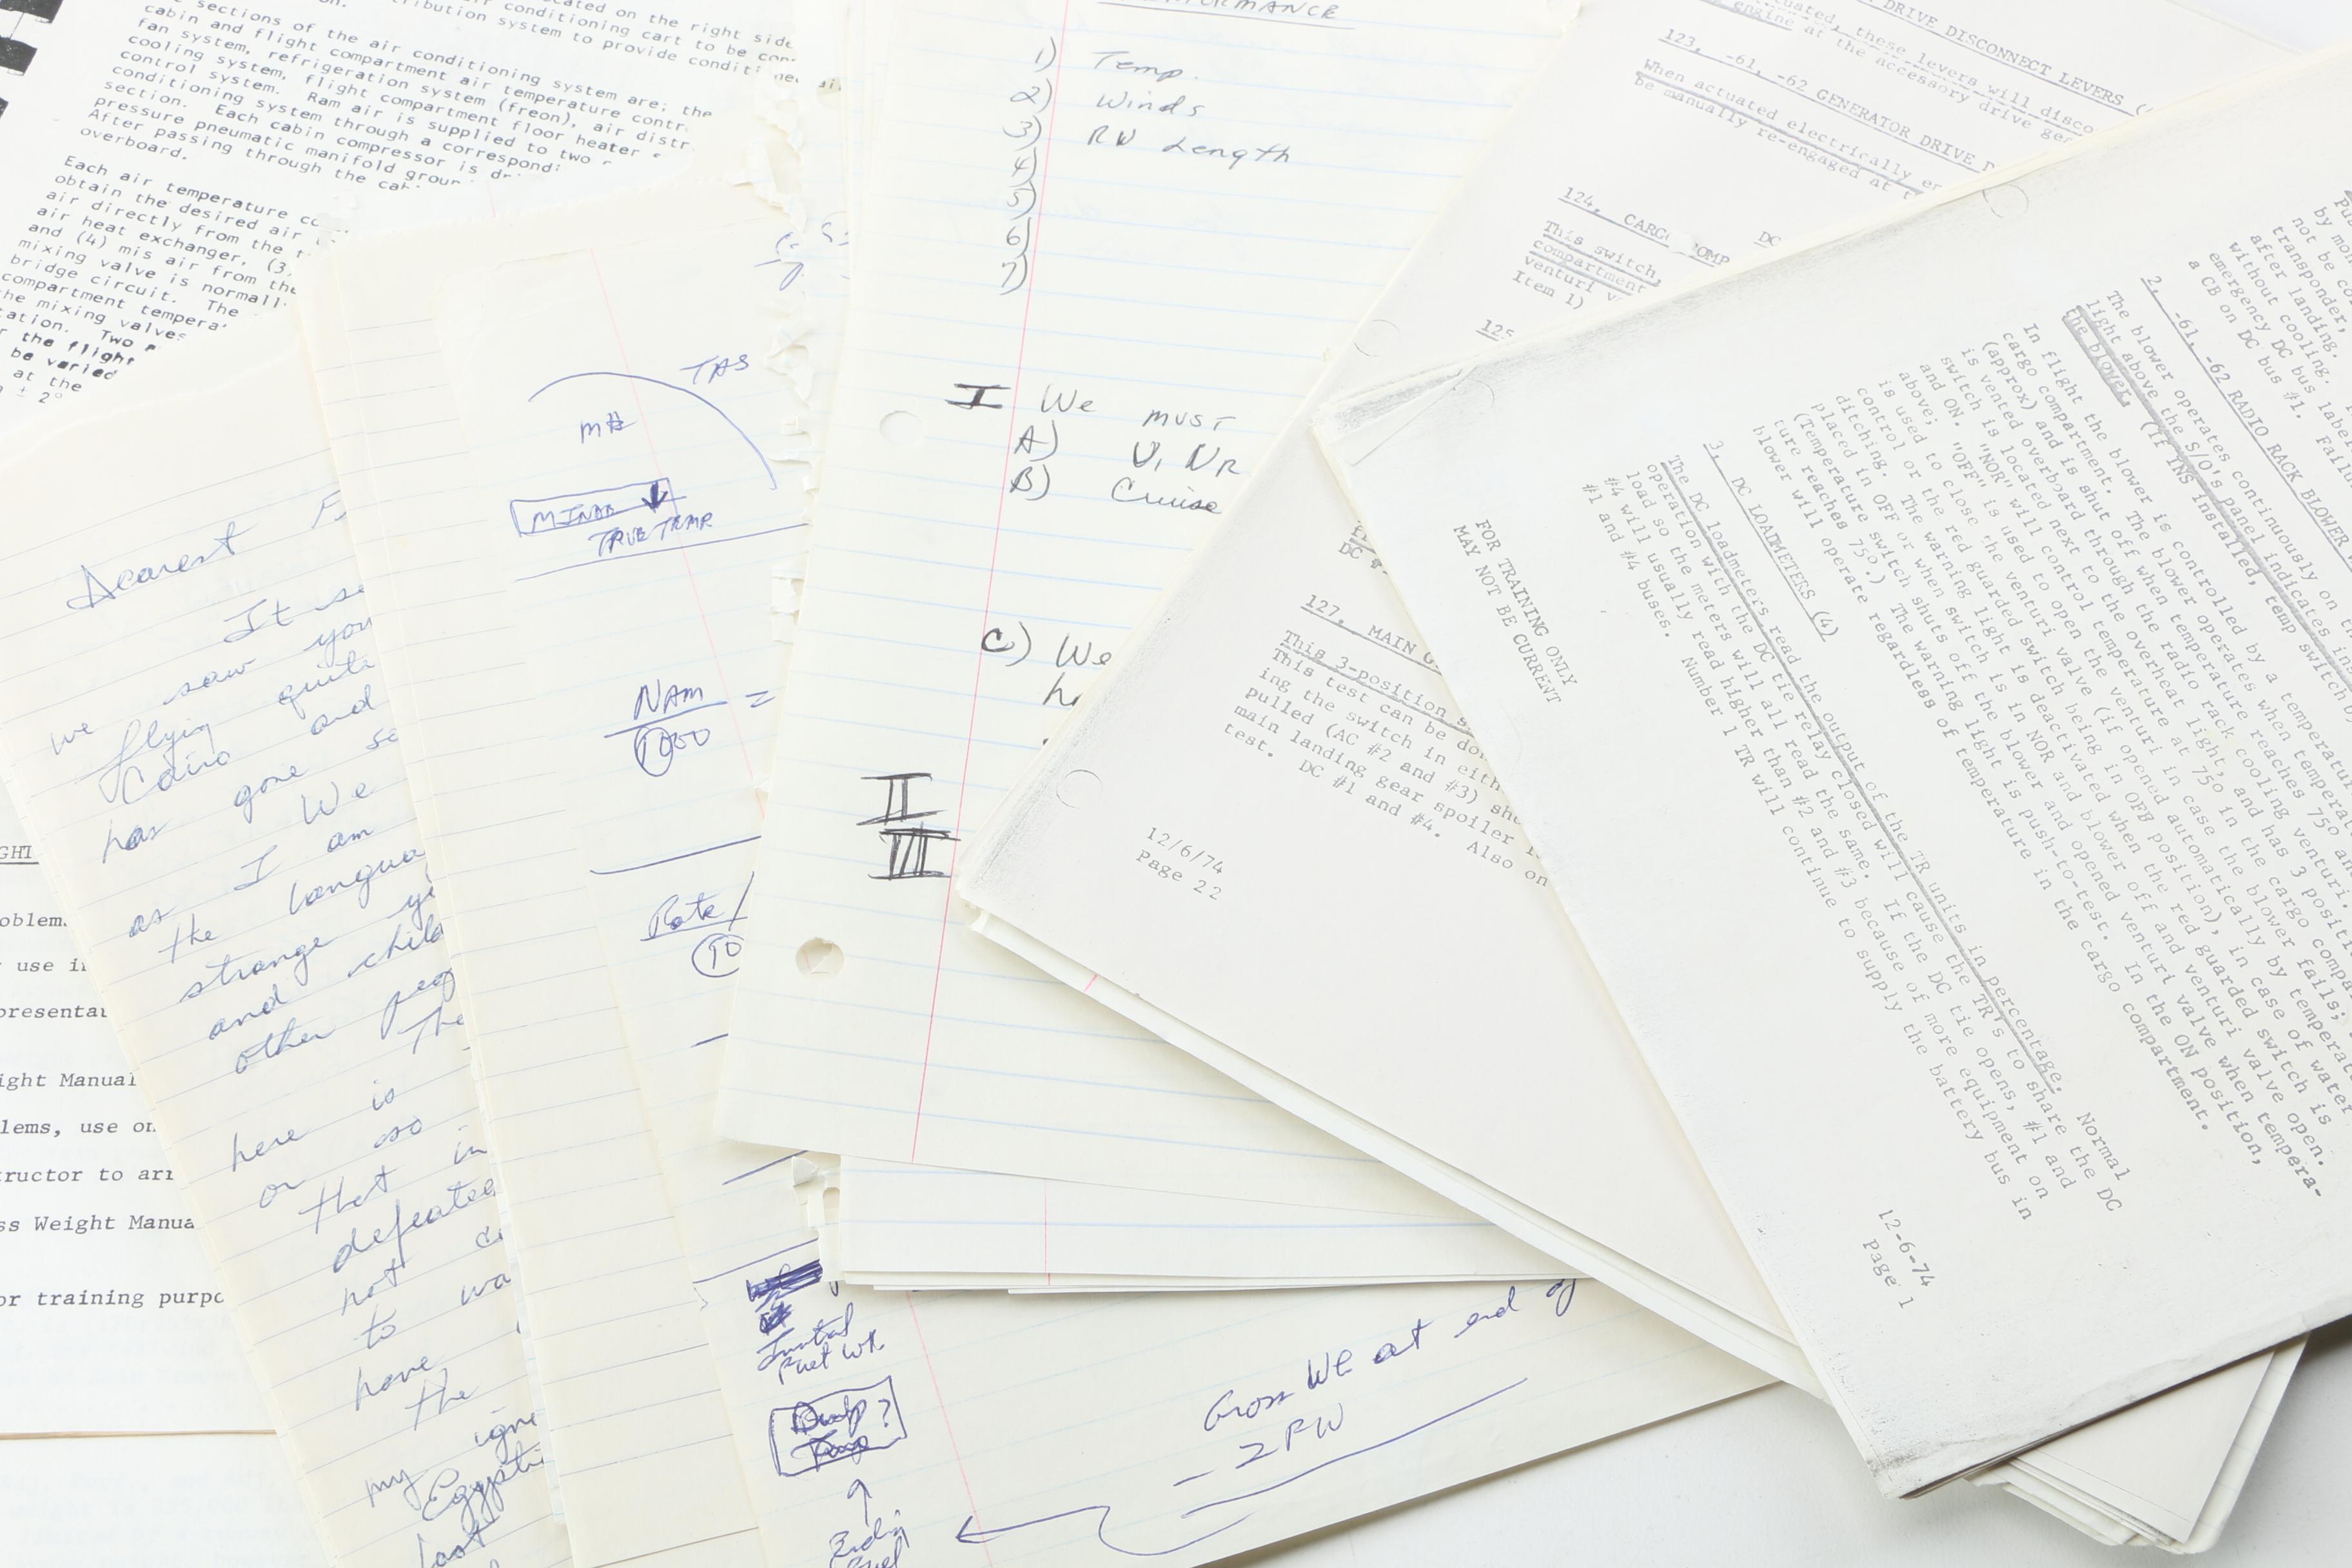 cated on the right side
sections of the air conditioning cart to be con
tribution system to provide conditi ned air
cabin and flight compartment air conditioning system are; the
fan system, refrigeration system (freon), air distr
cooling system, flight compartment air temperature contr
control system. Ram air is supplied to two
conditioning system through a correspondi
section. Each cabin compressor is dri
pressure pneumatic manifold grour
After passing through the cab
overboard.
Each air temperature co
obtain the desired air
air directly from the
air heat exchanger, (3,
and (4) mis air from the
mixing valve is normall
bridge circuit. The
compartment tempera
the mixing valves
tation. Two
the flight
be varied
at the
± 2°
GHT
oblem
use i
presentat
ight Manual
lems, use on
ructor to arr
ss Weight Manua
or training purpo
Dearest
It se
we saw you
flying quite
Cairo and
has gone so
as I We
the am
strange langua
and child
other peop
The
here is
or so
that in
defeated
not
to wa
have
the
my igno
Egypti
last
TAS
M#
TRUE TEMP
NAM =
1000
Rate/
10
Initial
Fuel Wt.
Temp
?
Gross Wt at end of
- 2FW
FORMANCE
1) Temp.
2) Winds
3) RW Length
4)
5)
6)
7)
I We must
A) V, NR
B) Cruise
C) We
II
VII
DRIVE DISCONNECT LEVERS (
tuated, these levers will disco
engine at the accessory drive gea
123. -61, -62 GENERATOR DRIVE D
When actuated electrically en
be manually re-engaged at t
124. CARG OMP
DC
This switch,
compartment
venturi v
Item 1)
125
DC
127. MAIN G
This 3-position s
This test can be don
ing the switch in eith
pulled (AC #2 and #3) sho
main landing gear spoiler
test. DC #1 and #4. Also on
12/6/74
Page 22
by mo
not be co
transponder
after landing.
without cooling.
emergency DC bus label
a CB on DC bus #1. Failu
2. -61, -62 RADIO RACK BLOWER
The blower operates continuously on
light above the S/O's panel indicates in
the blower. (If INS installed, temp switch
In flight the blower is controlled by a temperatur
cargo compartment. The blower operates when temperat
(approx) and is shut off when temperature reaches 75o an
is vented overboard through the radio rack cooling venturi.
switch is located next to the overheat light, and has 3 positi
and ON. "NOR" will control temperature at 75o in the cargo compa
above; "OFF" is used to open the venturi in case the blower fails;
is used to close the venturi valve (if opened automatically by temperat
control or the red guarded switch being in OFF position), in case of water
ditching. The warning light is deactivated when the red guarded switch is
placed in OFF or when switch is in NOR and blower off and venturi valve open.
(Temperature switch shuts off the blower and opened venturi valve when tempera-
ture reaches 75o.) The warning light is push-to-test. In the ON position,
blower will operate regardless of temperature in the cargo compartment.
3. DC LOADMETERS (4)
The DC loadmeters read the output of the TR units in percentage. Normal
operation with the DC tie relay closed will cause the TR's to share the DC
load so the meters will all read the same. If the DC tie opens, #1 and
#4 will usually read higher than #2 and #3 because of more equipment on
#1 and #4 buses. Number 1 TR will continue to supply the battery bus in
FOR TRAINING ONLY
MAY NOT BE CURRENT
12-6-74
Page 1